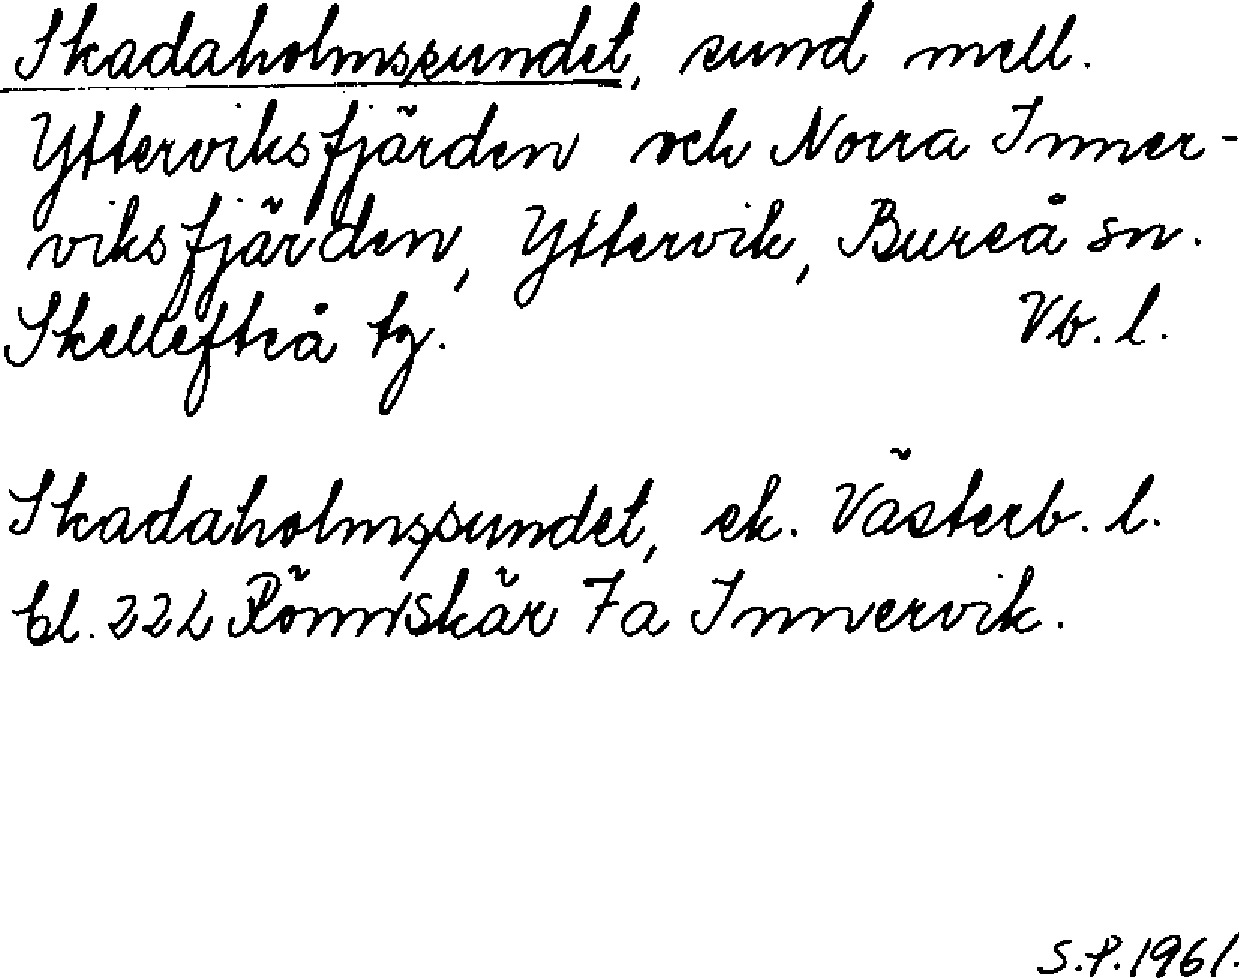 Skadaholmssundet, sund mell.
Ytterviksfjärden och Norra Inner-
viksfjärden, Yttervik, Bureå sn.
Skellefteå tg. Vb. l.
Skadaholmssundet, ek. Västerb. l.
bl. 22L Rönnskär 7a Innervik.
S.P. 1961.